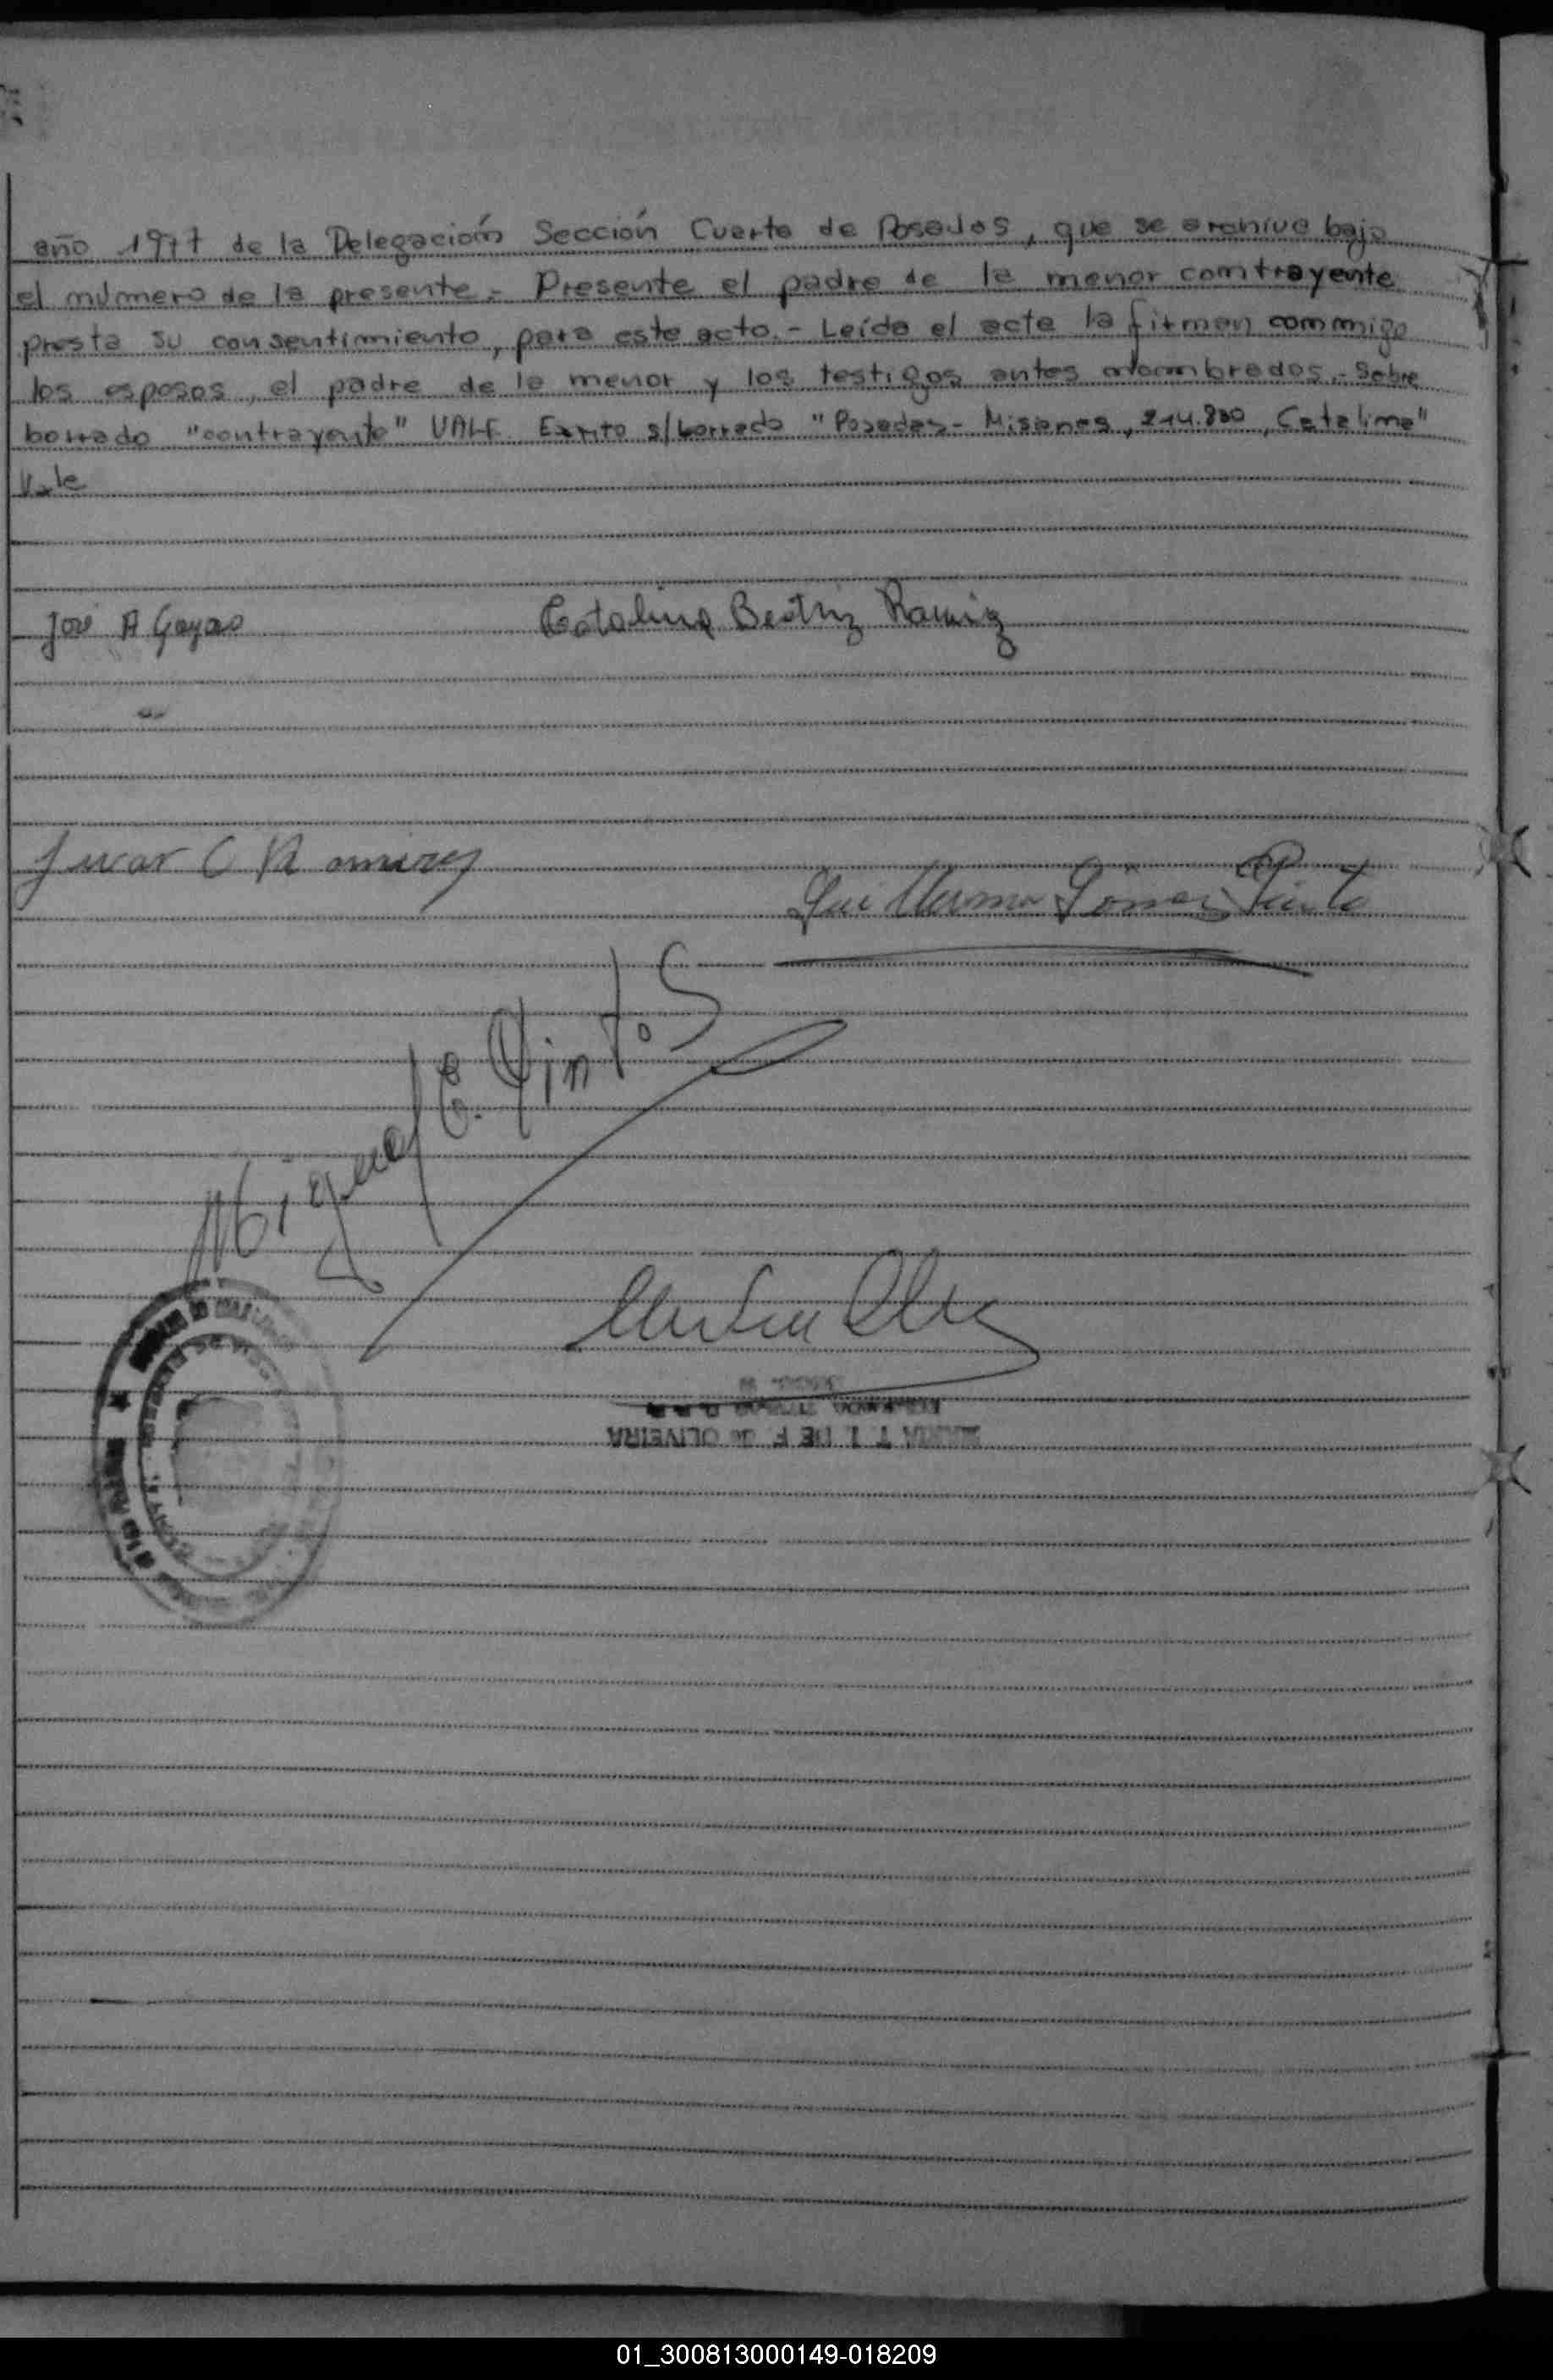 año 1977 de la Delegación Sección Cuarta de Posadas, que se archiva bajo
el número de la presente.- Presente el padre de la menor contrayente
presta su consentimiento, para este acto.- Leída el acta la firman conmigo
los esposos, el padre de la menor y los testigos antes nombrados.- Sobre
borrado "contrayente" VALE. Escrito s/borrado "Posadas- Misiones, 214.830, Catalina"
Vale
José A Gayas Catalina Beatriz Ramirez
Juar C Ramirez
Guillermo Gómez Pinto
Miguel E. Pinto S
MARIA T. I. DE F. de OLIVEIRA
01_300813000149-018209